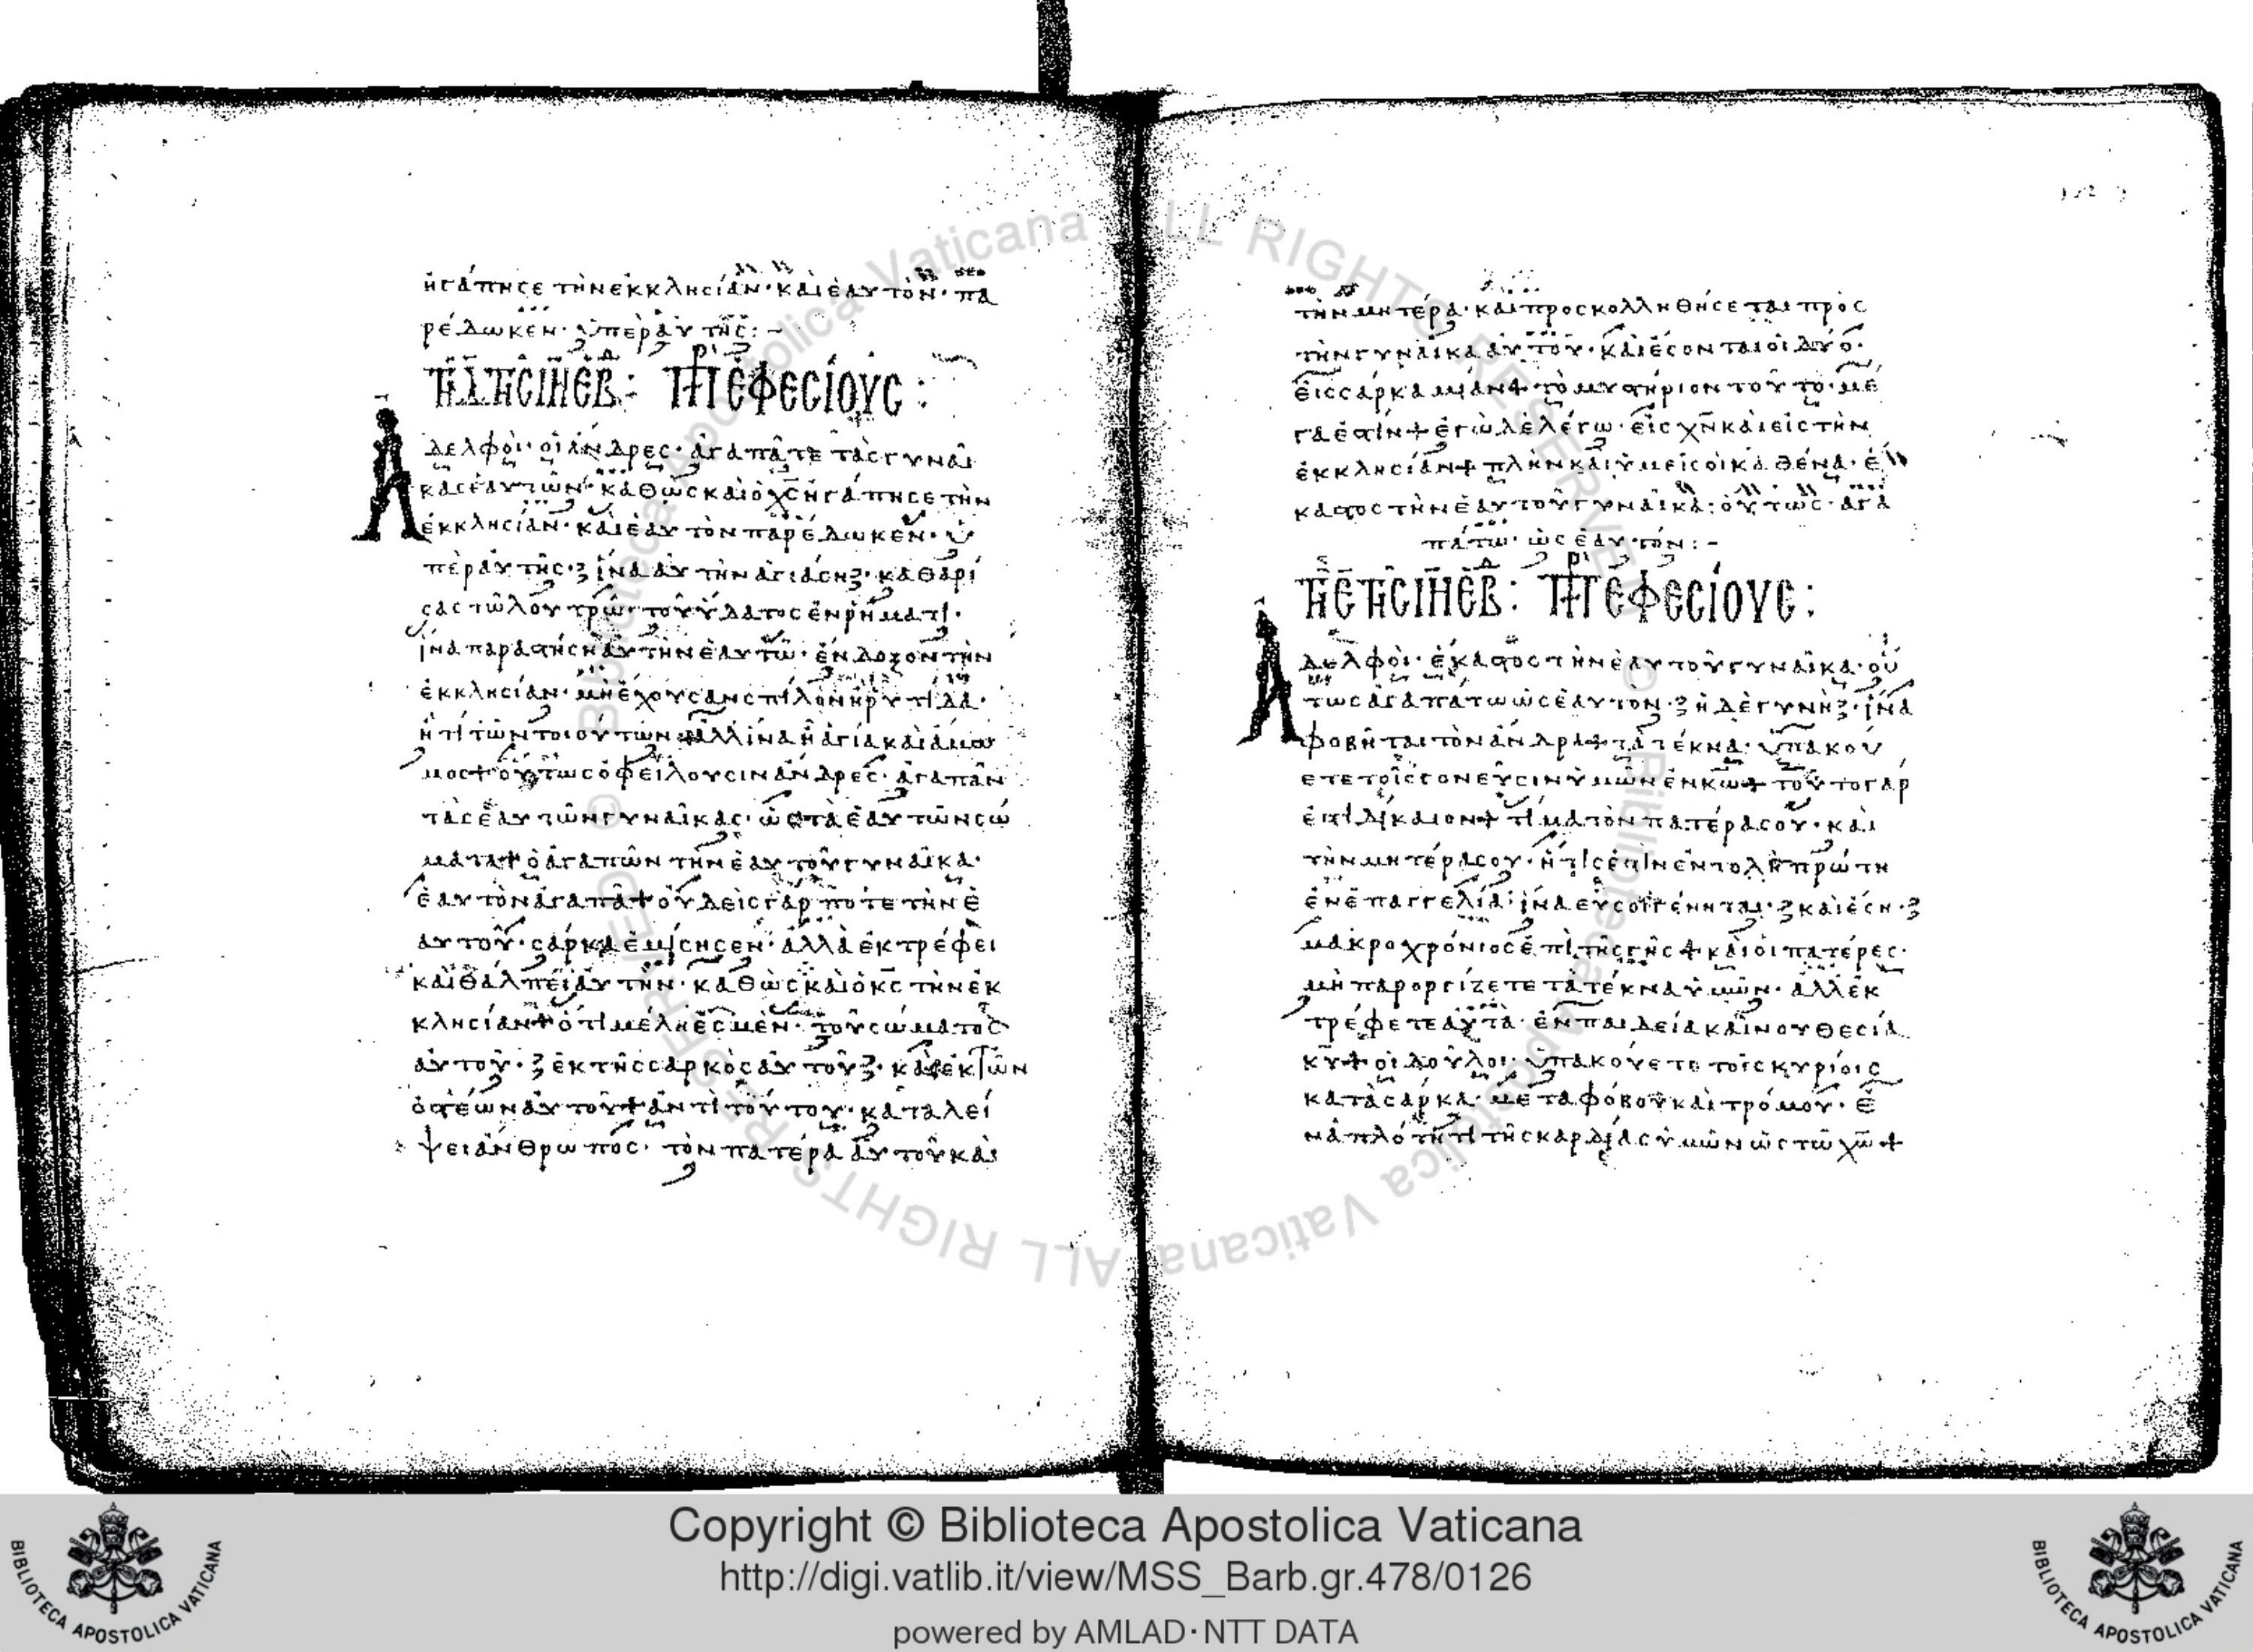 ἠγάπησε τὴν ἐκκλησίαν· καὶ ἑαυτὸν· πα
ρέδωκεν· ὑπὲρ αὐτῆς:
ἐφεσίους:
Ἀδελφοὶ· οἱ ἄνδρες· ἀγαπᾶτε τὰς γυναῖ
κας ἑαυτῶν· καθὼς καὶ ὁ χς ἠγάπησε τὴν
ἐκκλησίαν· καὶ ἑαυτὸν παρέδωκεν· ὑ
πὲρ αὐτῆς· ἵνα αὐτὴν ἁγιάση· καθαρί
σας τῶ λουτρῶ· τοῦ ὕδατος ἐν ῥήματι·
ἵνα παραστήση αὐτὴν ἑαυτῶ· ἔνδοξον τὴν
ἐκκλησίαν· μὴ ἔχουσαν σπίλον ἢ ῥυτίδα·
ἤ τι τῶν τοιούτων + ἀλλ ἵνα ἦ ἁγία καὶ ἄμω
μος + οὕτως ὀφείλουσιν ἄνδρες· ἀγαπᾶν
τὰς ἑαυτῶν γυναῖκας· ὡς τὰ ἑαυτῶν σώ
ματα + ὁ ἀγαπῶν τὴν ἑαυτοῦ γυναῖκα·
ἑαυτὸν ἀγαπᾶ + οὐδεὶς γάρ ποτε τὴν ἑ
αυτοῦ· σάρκα ἐμίσησεν· ἀλλὰ ἐκτρέφει
καὶ θάλπει αὐτὴν· καθὼς καὶ ὁ κς τὴν ἐκ
κλησίαν + ὅτι μέλη ἐσμὲν· τοῦ σώματος
αὐτοῦ· ἐκ τῆς σαρκὸς αὐτοῦ· καὶ ἐκ τῶν
ὀστέων αὐτοῦ + ἀντὶ τούτου· καταλεί
ψει ἄνθρωπος· τὸν πατέρα αὐτοῦ καὶ
τὴν μητέρα· καὶ προσκολληθήσεται πρὸς
τὴν γυναῖκα αὐτοῦ· καὶ ἔσονται οἱ δύο·
εἰς σάρκα μίαν + τὸ μυστήριον τοῦτο· μέ
γα ἐστίν + ἐγὼ δὲ λέγω· εἰς χν καὶ εἰς τὴν
ἐκκλησίαν + πλὴν καὶ ὑμεῖς οἱ καθένα· ἕ
καστος τὴν ἑαυτοῦ γυναῖκα· οὕτως· ἀγα
πάτω· ὡς ἑαυτόν:
ἐφεσίους:
Ἀδελφοὶ· ἕκαστος τὴν ἑαυτοῦ γυναῖκα· οὕ
τως ἀγαπάτω ὡς ἑαυτον· ἡ δὲ γυνὴ· ἵνα
φοβῆται τὸν ἄνδρα + τὰ τέκνα· ὑπακού
ετε τοῖς γονεῦσιν ὑμῶν ἐν κω + τοῦτο γάρ
ἐστι δίκαιον + τίμα τὸν πατέρα σου· καὶ
τὴν μητέρα σου· ἥτις ἐστὶν ἐντολὴ πρώτη
ἐν ἐπαγγελία· ἵνα εὖ σοι γένηται· καὶ ἔση·
μακροχρόνιος ἐπὶ τῆς γῆς + καὶ οἱ πατέρες·
μὴ παροργίζετε τὰ τέκνα ὑμῶν· ἀλλ ἐκ
τρέφετε αὐτὰ· ἐν παιδεία καὶ νουθεσία
κυ + οἱ δοῦλοι· ὑπακούετε τοῖς κυρίοις
κατὰ σάρκα· μετα φόβου καὶ τρόμου· ἐ
ν ἁπλότητι τῆς καρδίας ὑμῶν ὡς τῶ χω +
Copyright © Biblioteca Apostolica Vaticana
http://digi.vatlib.it/view/MSS_Barb.gr.478/0126
powered by AMLAD·NTT DATA
BIBLIOTECA APOSTOLICA VATICANA
BIBLIOTECA APOSTOLICA VATICANA
© Biblioteca Apostolica Vaticana ALL RIGHTS RESERVED
© Biblioteca Apostolica Vaticana ALL RIGHTS RESERVED